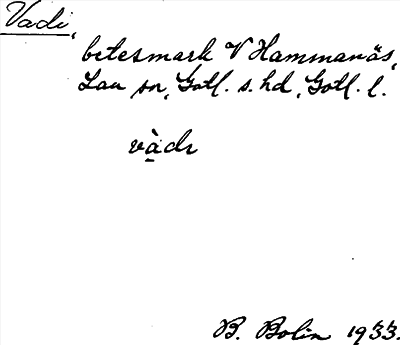 Vadi,
betesmark V Hammanäs,
Lau sn, Gotl. s. hd, Gotl. l.
vàdi
B. Bolin 1933.